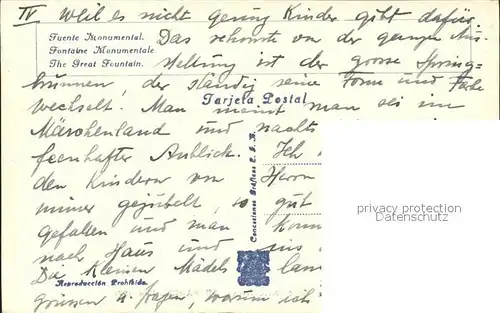 IV weil es nicht genug Kinder gibt dafür.
Fuente Monumental.
Fontaine Monumentale.
The Great Fountain.
Das schönste von der ganzen Aus-
stellung ist der grosse Spring-
brunnen, der ständig seine Form und Farbe
wechselt. Man meint man sei im
Tarjeta Postal
Märchenland und nachts
feenhafter Anblick. Ich
den Kindern von Herrn
gejubelt, so gut
gefallen und man
nach Haus und ins
Die kleinen Mädels
grüssen u. fragen, warum ich
Concesiones Gráficas E. I. B.
Reproducción Prohibida
privacy protection
Datenschutz